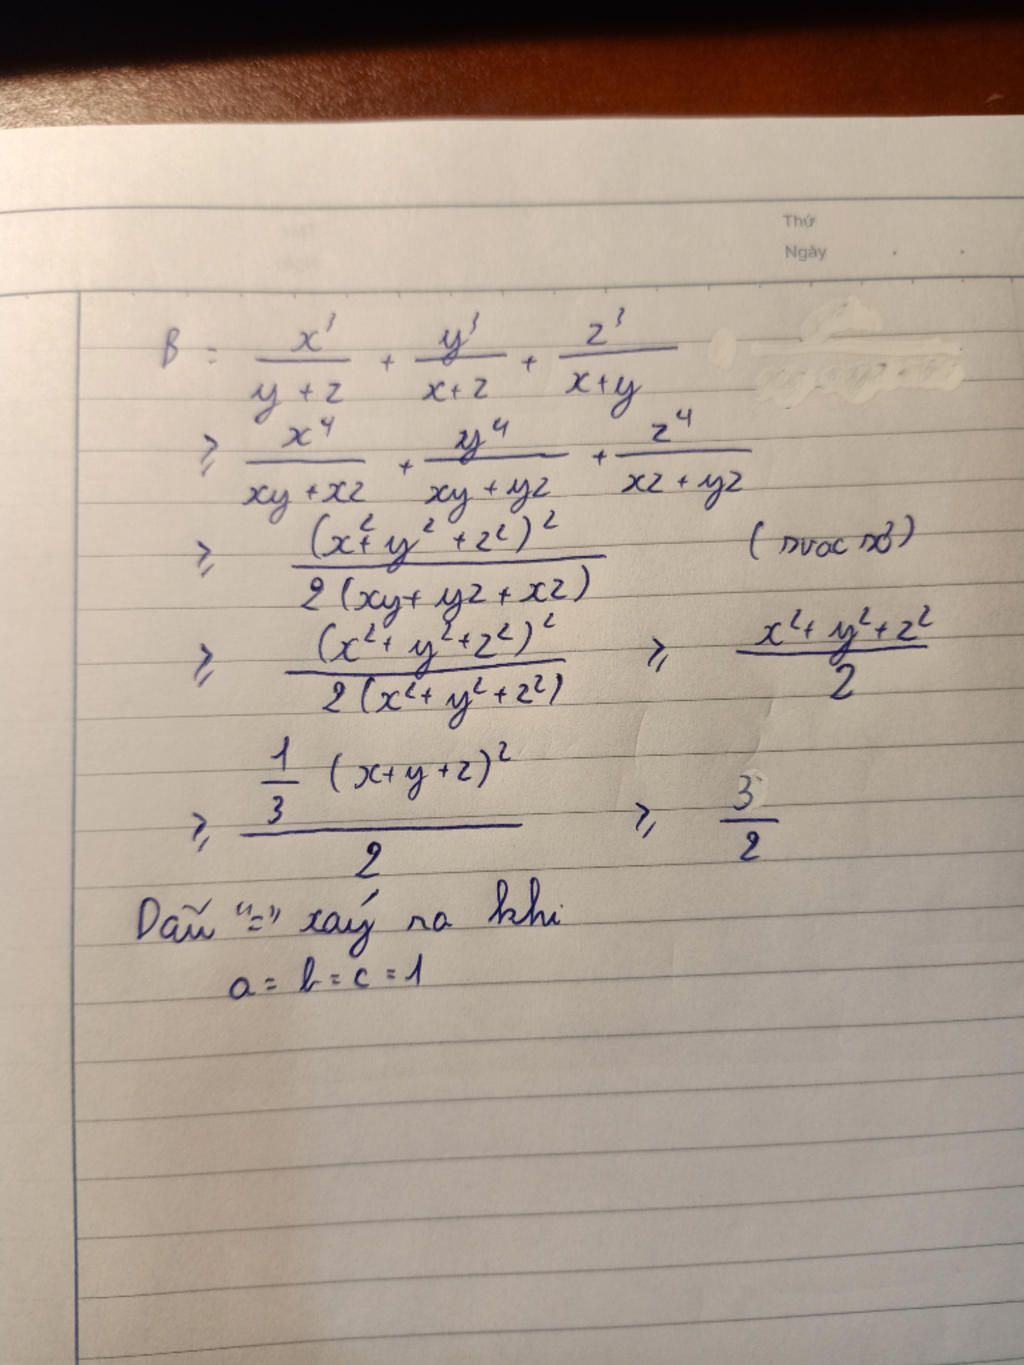 Thứ
Ngày
B = x³/(y+z) + y³/(x+z) + z³/(x+y)
≥ x⁴/(xy+xz) + y⁴/(xy+yz) + z⁴/(xz+yz)
≥ (x²+y²+z²)²/2(xy+yz+xz) (svac sơ)
≥ (x²+y²+z²)²/2(x²+y²+z²) ≥ (x²+y²+z²)/2
≥ (1/3 (x+y+z)²)/2 ≥ 3/2
Dấu "=" xảy ra khi
a = b = c = 1